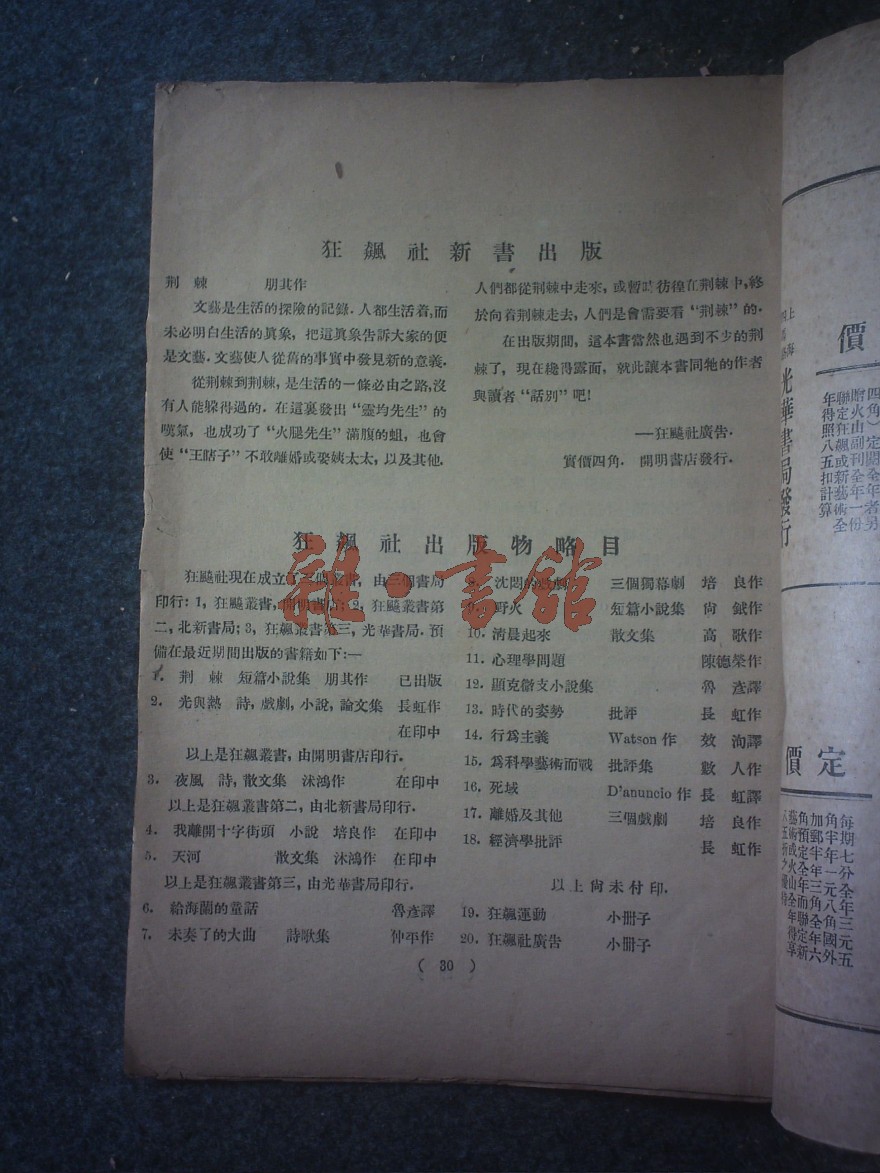 狂飆社新書出版
荆棘 朋其作
文藝是生活的探險的記錄．人都生活着，而
未必明白生活的眞象，把這眞象告訴大家的便
是文藝．文藝使人從舊的事實中發見新的意義．
從荆棘到荆棘，是生活的一條必由之路，沒
有人能躲得過的．在這裏發出“靈均先生”的
嘆氣，也成功了“火腿先生”滿腹的蛆，也會
使“王瞎子”不敢離婚或娶姨太太，以及其他．
人們都從荆棘中走來，或暫時彷徨在荆棘中，終
於向着荆棘走去，人們是會需要看“荆棘”的．
在出版期間，這本書當然也遇到不少的荆
棘了，現在纔得露面，就此讓本書同牠的作者
與讀者“話別”吧！
—狂飈社廣告．
實價四角． 開明書店發行．
狂飆社出版物略目
狂飈社現在成立了三個叢書，由三個書局
印行：1，狂飈叢書，開明書店；2，狂飈叢書第
二，北新書局；3，狂飆叢書第三，光華書局．預
備在最近期間出版的書籍如下：—
1． 荆棘 短篇小說集 朋其作 已出版
2． 光與熱 詩，戲劇，小說，論文集 長虹作
在印中
以上是狂飆叢書，由開明書店印行．
3． 夜風 詩，散文集 沐鴻作 在印中
以上是狂飆叢書第二，由北新書局印行．
4． 我離開十字街頭 小說 培良作 在印中
5． 天河 散文集 沐鴻作 在印中
以上是狂飆叢書第三，由光華書局印行．
6． 給海蘭的童話 魯彥譯
7． 未奏了的大曲 詩歌集 仲平作
8． 沈悶的戲劇 三個獨幕劇 培良作
9． 野火 短篇小說集 尙鉞作
10． 清晨起來 散文集 高歌作
11． 心理學問題 陳德榮作
12． 顯克微支小說集 魯彥譯
13． 時代的姿勢 批評 長虹作
14． 行爲主義 Watson 作 效洵譯
15． 爲科學藝術而戰 批評集 數人作
16． 死域 D'anuncio 作 長虹譯
17． 離婚及其他 三個戲劇 培良作
18． 經濟學批評 長虹作
以上尙未付印．
19． 狂飆運動 小冊子
20． 狂飆社廣告 小冊子
( 30 )
雜·書館
價
上海
光華書局發行
四角）定閱全年者另
贈火山副刊全年一份
聯定狂飆或新藝術全
年得照八五扣計算
定價
每期七分全年三元五
角半年一元八角國外
加郵半年三角全年六
角預定全年而聯定新
藝術或火山全年得享